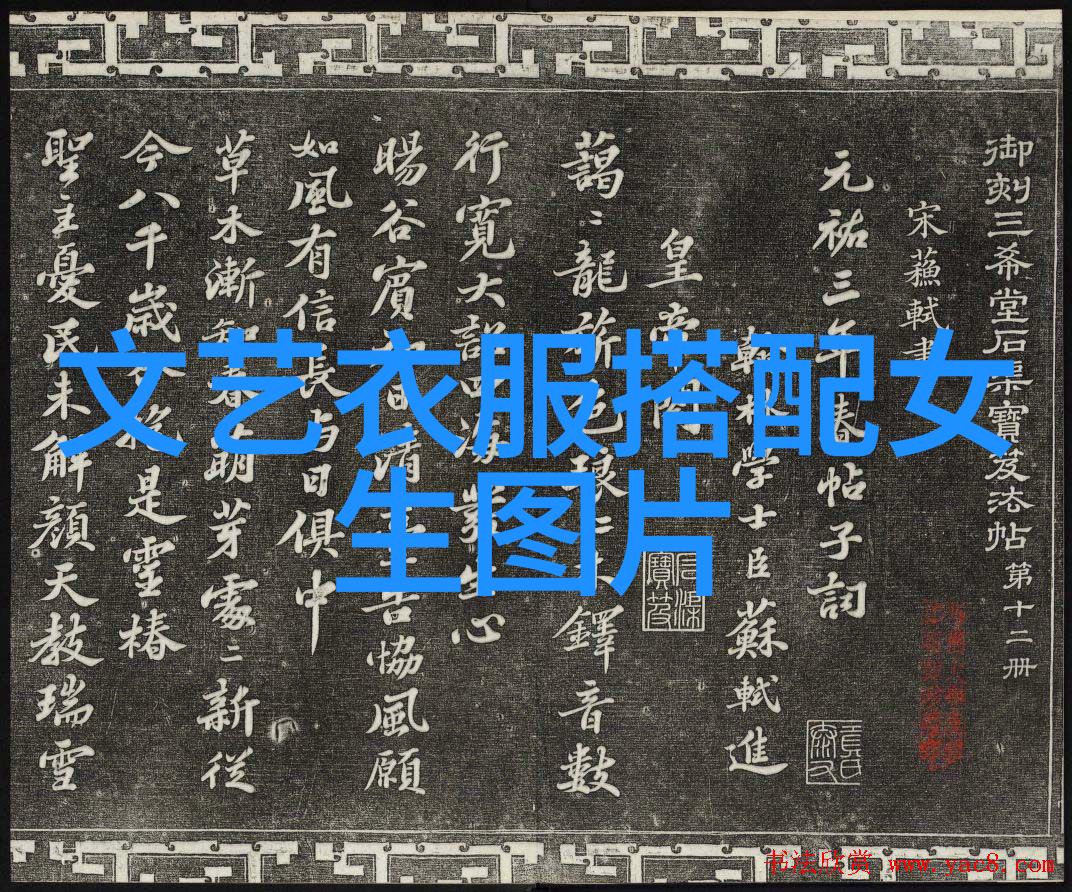 文艺衣服搭配女
生图片
御刻三希堂石渠寶笈法帖第十二冊
宋蘇軾書
元祐三年春帖子詞
翰林學士臣蘇軾進
皇帝閤
藹〻龍旂色琅〻木鐸音數
行寬大詔四海發生心
暘谷賓初日清臺告協風願
如風有信長与日俱中
草木漸知春萌芽處〻新從
今八千歲合抱是靈椿
聖主憂民未解顏天教瑞雪
書法欣赏 www.yac8.com